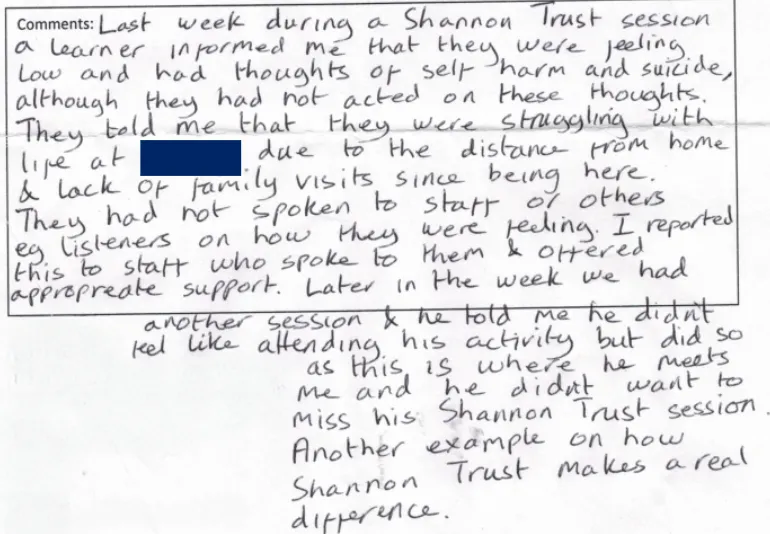 Comments: Last week during a Shannon Trust session
a learner informed me that they were feeling
low and had thoughts of self harm and suicide,
although they had not acted on these thoughts.
They told me that they were struggling with
life at due to the distance from home
& lack of family visits since being here.
They had not spoken to staff or others
eg listeners on how they were feeling. I reported
this to staff who spoke to them & offered
appropreate support. Later in the week we had
another session & he told me he didn't
feel like attending his activity but did so
as this is where he meets
me and he didn't want to
miss his Shannon Trust session.
Another example on how
Shannon Trust makes a real
difference.